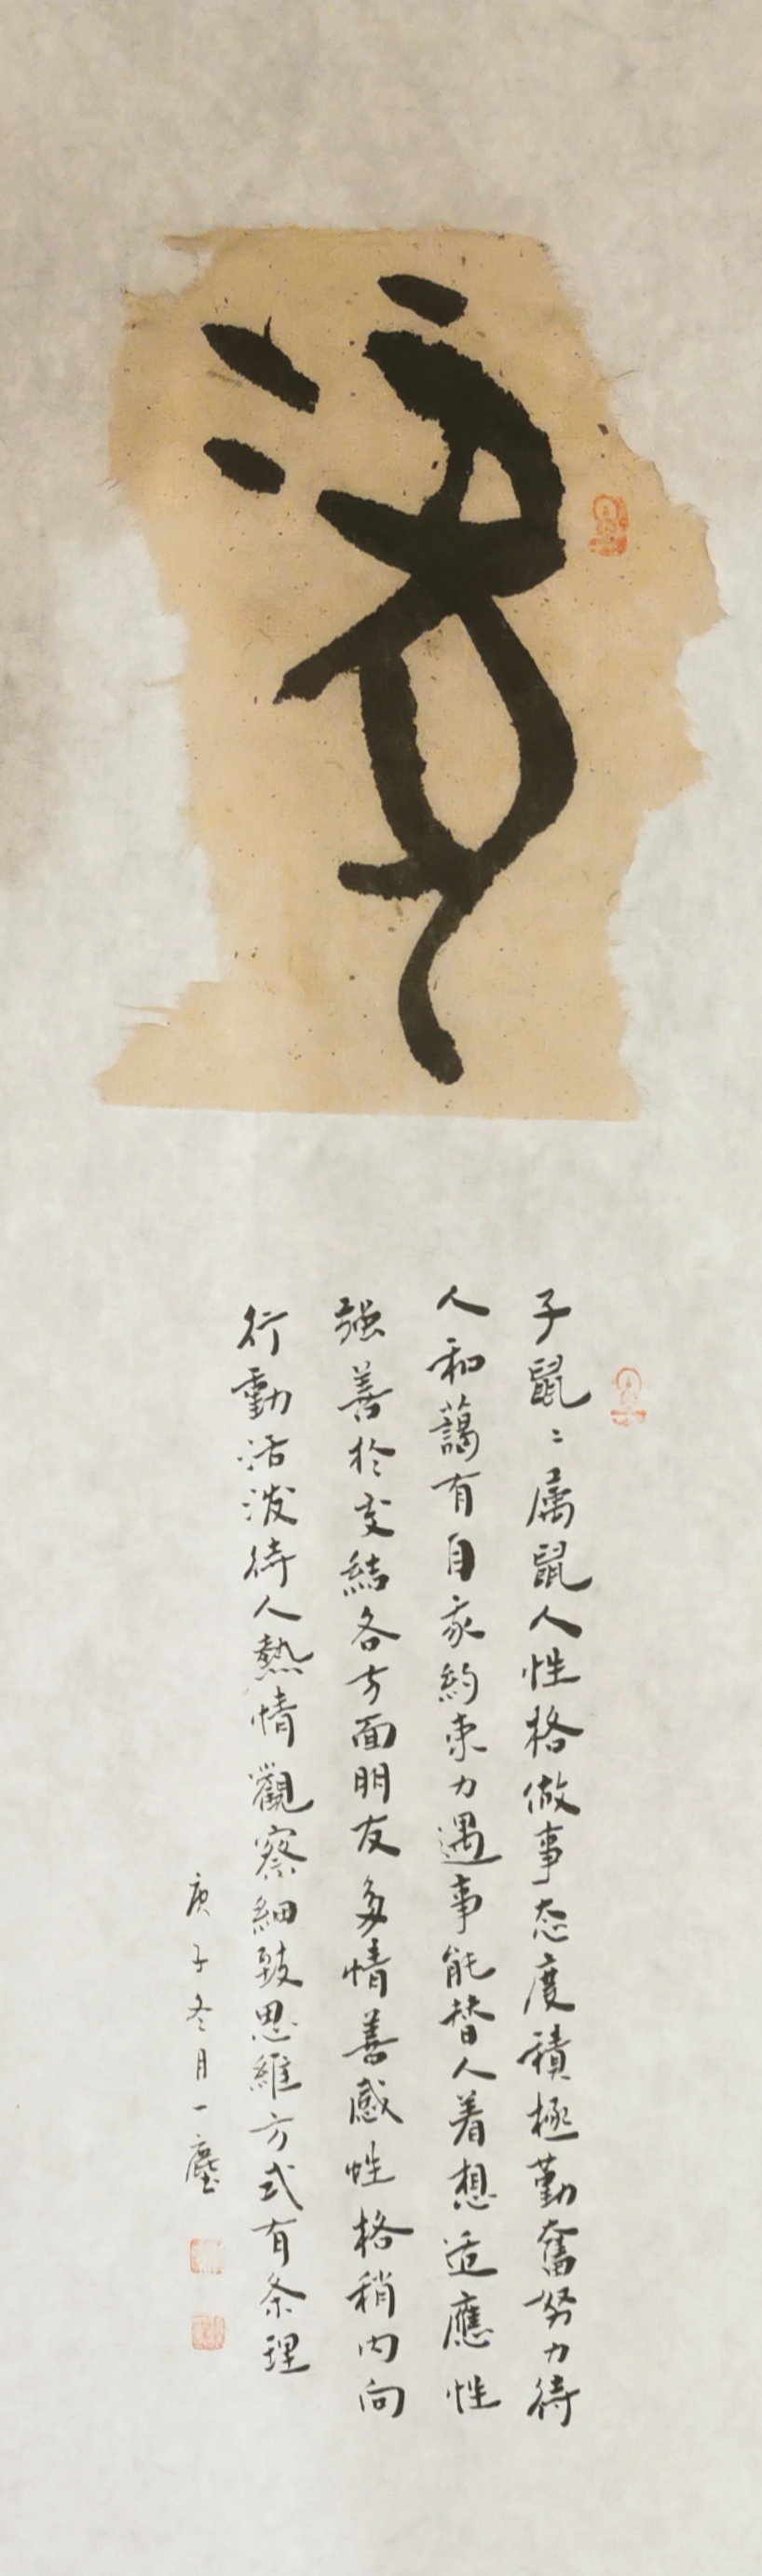 子鼠：属鼠人性格做事态度積極勤奮努力待
人和藹有自家約束力遇事能替人着想适應性
强善於交結各方面朋友多情善感性格稍内向
行動活泼待人熱情觀察細致思維方式有条理
庚子冬月一塵